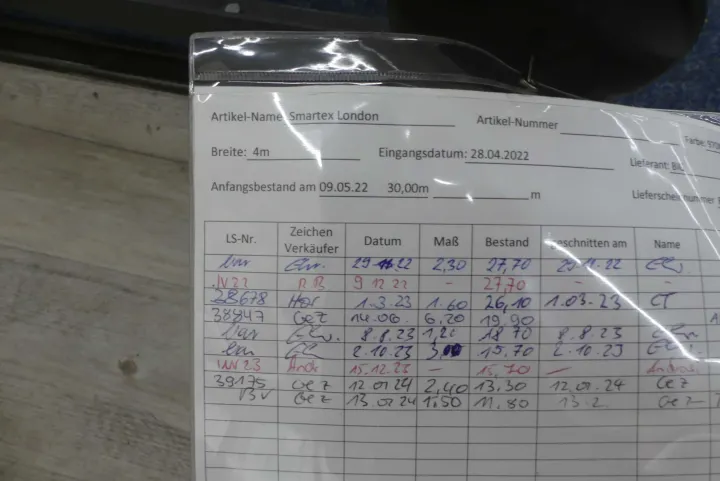 Artikel-Name Smartex London Artikel-Nummer Farbe:
Breite: 4m Eingangsdatum: 28.04.2022 Lieferant:
Anfangsbestand am 09.05.22 30,00m m Lieferschein nummer
LS-Nr. Zeichen Verkäufer Datum Maß Bestand eschnitten am Name
bar 29.11.22 2,30 27,70 29.11.22
9 12 22 - 27,70 - -
28678 Hor 1.3.23 1.60 26,10 1.03.23 CT
38947 Gez 14.06. 6,20 19,90
bar 8.8.23 1,20 18 70 8.8.23
bar 2.10.23 15,70 2.10.23
INV 23 Andr 15.12.23 — 15,70 —
39175 Gez 12 01 24 2,40 13.30 12.01.24 Gez
BV Gez 13.02 24 1.50 11.80 13.2. Gez